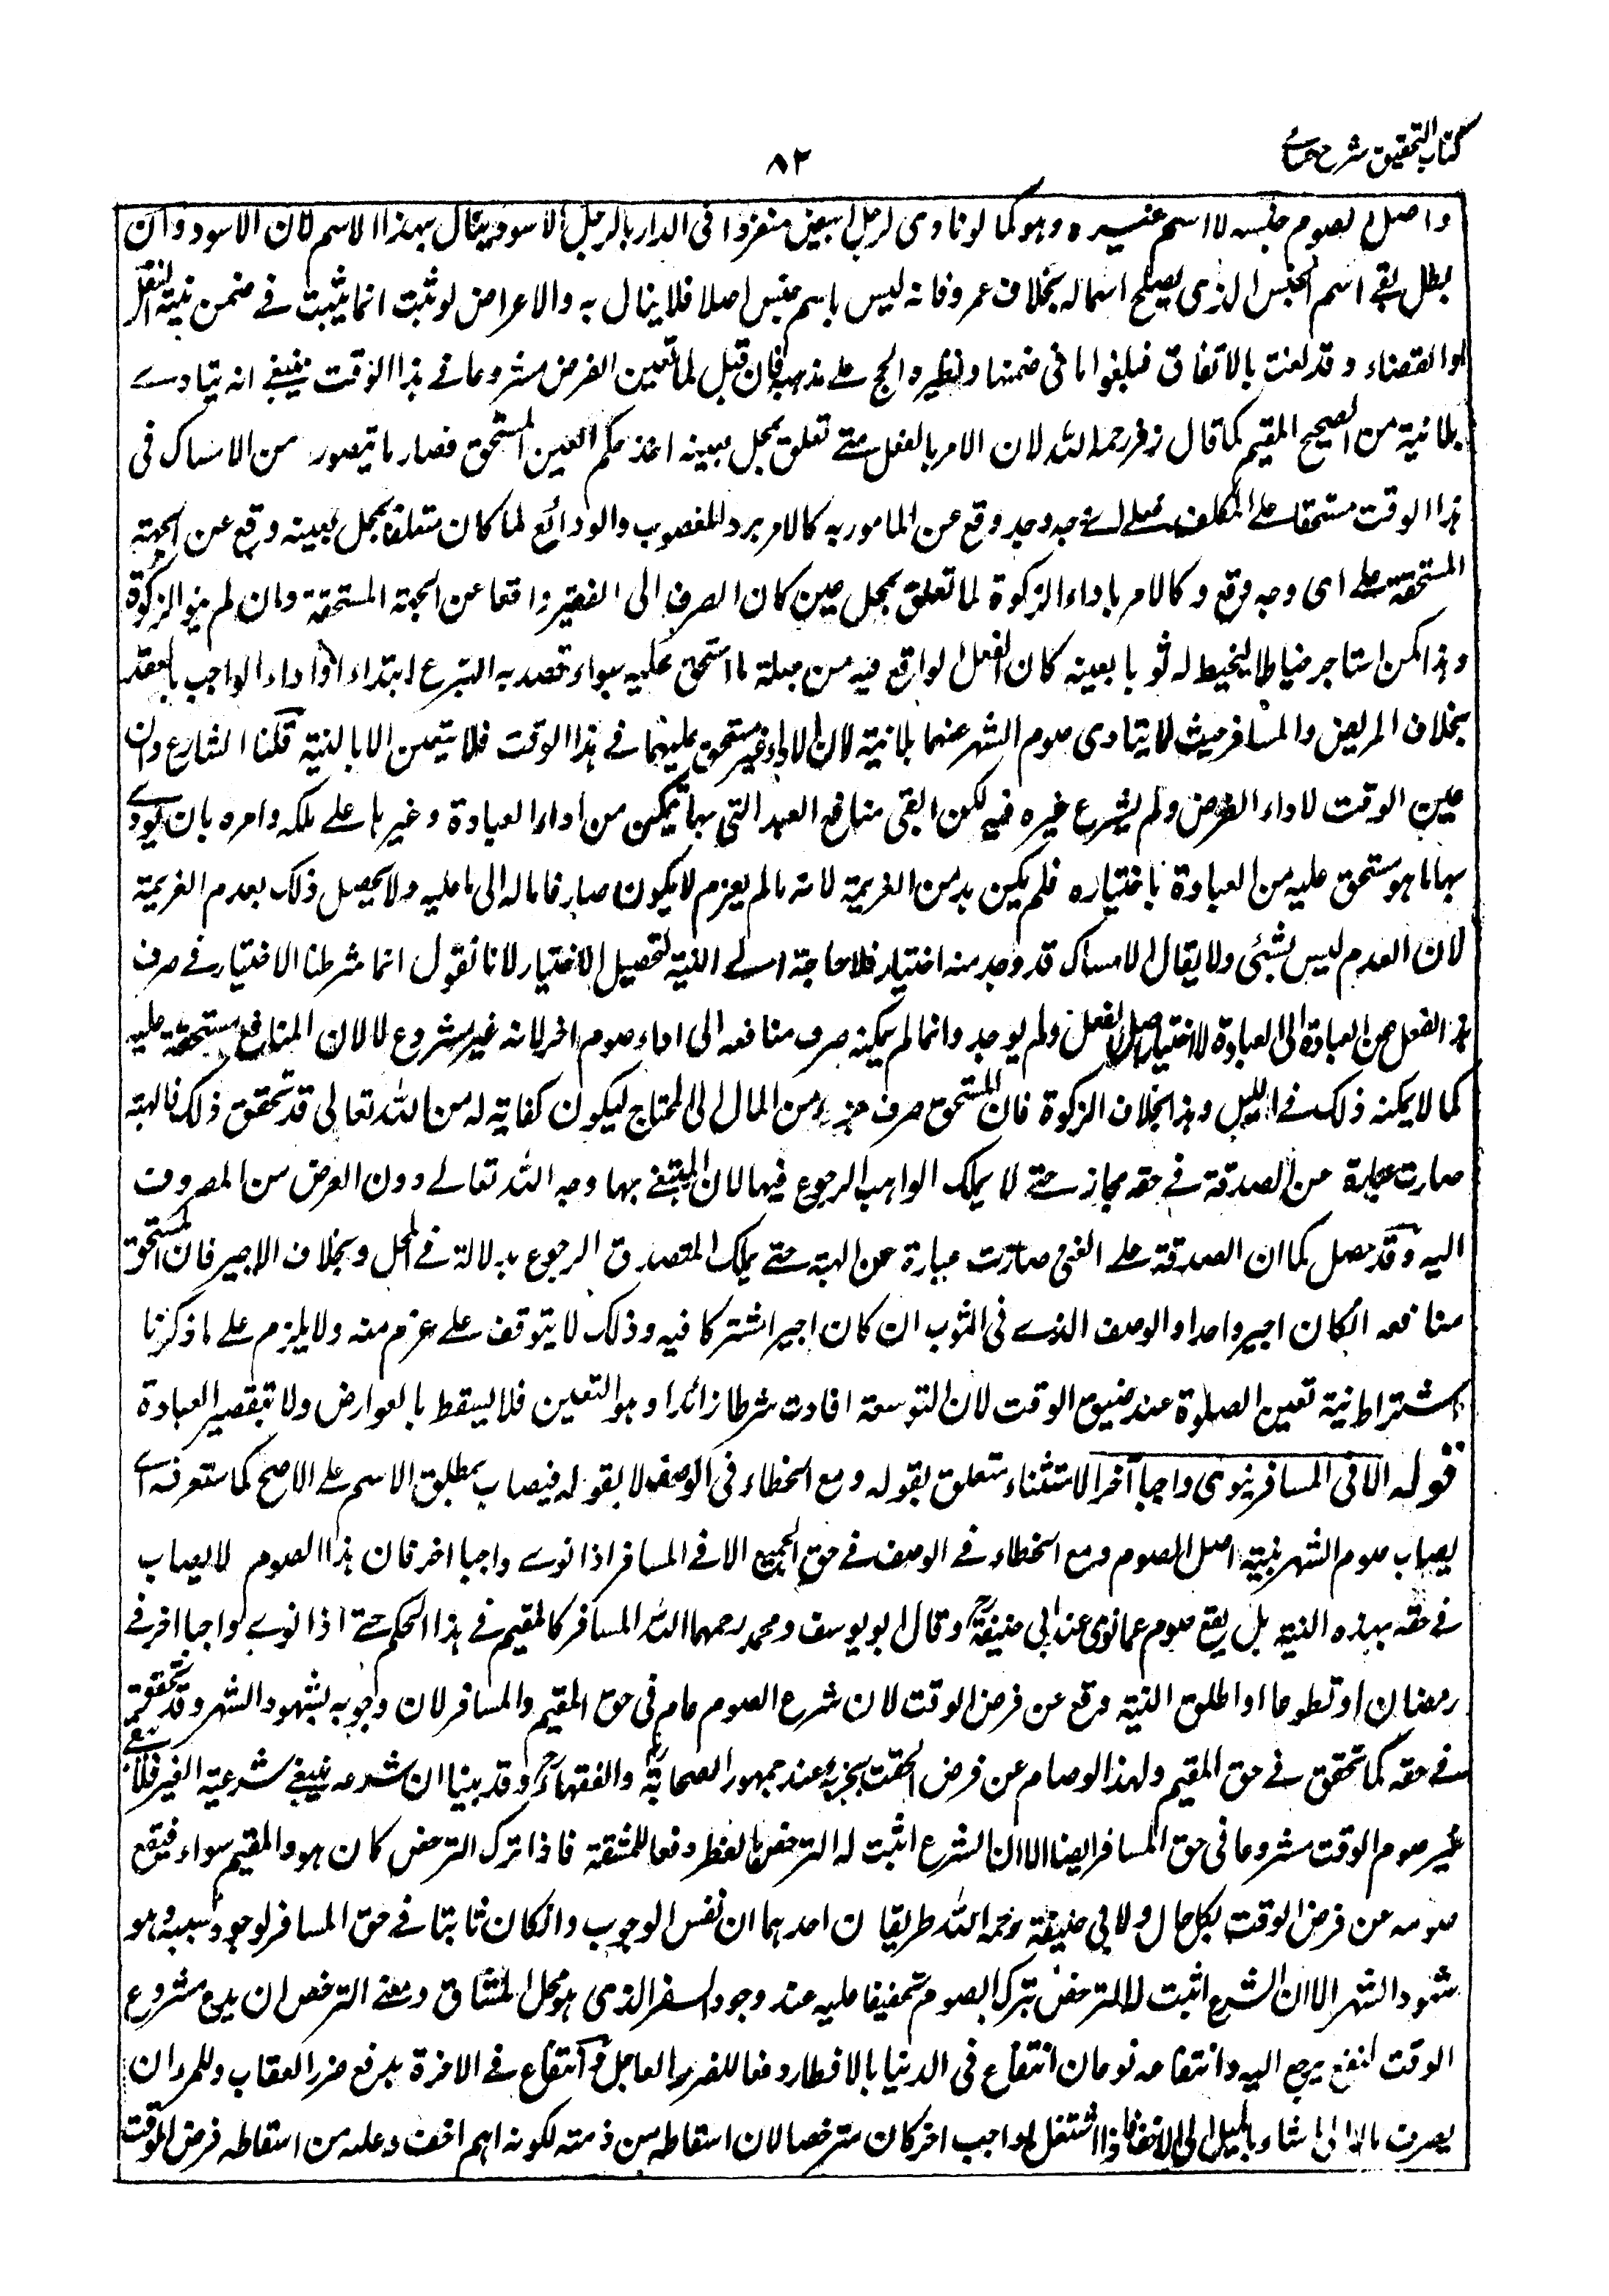 كتاب التحقيق شرح حسامى
٨٢
واصل الصوم جنسه لا اسم غيره وهو كما لو نادى لرجل ابيض منفردا فى الدار بالرجل الاسود ينال بهذا الاسم لان الاسود وان
بطل بقى اسم الجنس الذى يصلح اسما له بخلاف عمرو فانه ليس باسم جنس اصلا فلا ينال به والاعراض لو ثبت انما يثبت فى ضمن نية النفل
او القضاء وقد لغت بالاتفاق فيلغو اما فى ضمنها ونظيره الحج على مذهبه فان قيل لما تعين الفرض مشروعا فى هذا الوقت ينبغى انه يتادى
بلا نية من الصحيح المقيم كما قال زفر رحمه الله لان الامر بالفعل متى تعلق بمحل بعينه اخذ حكم العين المستحق فصار ما يتصور من الامساك فى
هذا الوقت مستحقا على المكلف فعلى اى وجه وجد وقع عن المامور به كالامر برد المغصوب والودائع لما كان متعلقا بمحل بعينه وقع عن الجهة
المستحقة على اى وجه وقع وكالامر باداء الزكوة لما تعلق بمحل عين كان الصرف الى الفقير واقعا عن الجهة المستحقة وان لم ينو الزكوة
وهذا كمن استاجر خياطا ليخيط له ثوبا بعينه كان الفعل الواقع فيه من جملة ما استحق عليه سواء قصد به التبرع ابتداء او اداء الواجب بالعقد
بخلاف المريض والمسافر حيث لا يتادى صوم الشهر عنهما بلا نية لان الاداء غير مستحق عليهما فى هذا الوقت فلا يتعين الا بالنية قلنا الشارع وان
عين الوقت لاداء الفرض ولم يشرع غيره فيه لكن ابقى منافع العبد التى بها يتمكن من اداء العبادة وغيرها على ملكه وامره بان يودى
بها ما هو مستحق عليه من العبادة باختياره فلم يكن بد من العزيمة لانه ما لم يعزم لا يكون صارفا ماله الى ما عليه ولا يحصل ذلك بعدم العزيمة
لان العدم ليس بشئى ولا يقال الامساك قد وجد منه اختيار فلا حاجة الى النية لتحصيل الاختيار لانا نقول انما شرطنا الاختيار فى صرف
هذا الفعل من العبادة الى العبادة لا اختيار اصل الفعل ولم يوجد وانما لم يمكنه صرف منافعه الى اداء صوم اخر لانه غير مشروع لا لان المنافع مستحقة عليه
كما لا يمكنه ذلك فى الليل وهذا بخلاف الزكوة فان المستحق صرف جزء من المال الى المحتاج ليكون كفاية له من الله تعالى قد تحقق ذلك فالهبة
صارت عبارة عن الصدقة فى حقه مجازا حتى لا يملك الواهب الرجوع فيها لان المبتغى بها وجه الله تعالى دون العرض من المصروف
اليه وقد حصل كما ان الصدقة على الغنى صارت عبارة عن الهبة حتى يملك المتصدق الرجوع بدلالة فى المحل وبخلاف الاجير فان المستحق
منافعه انكان اجير واحد او الوصف الذى فى الثوب ان كان اجيرا مشتركا فيه وذلك لا يتوقف على عزم منه ولا يلزم على ما ذكرنا
اشتراط نية تعيين الصلوة عند ضيق الوقت لان التوسعة افادت شرطا زائدا وهو التعيين فلا يسقط بالعوارض ولا بتقصير العبادة
قوله الا فى المسافر ينوى واجبا آخر الاستثناء متعلق بقوله ومع الخطاء فى الوصف لا بقوله فيصاب بمطلق الاسم على الاصح كما ستعرفه اى
يصاب صوم الشهر بنية اصل الصوم ومع الخطاء فى الوصف فى حق الجميع الا فى المسافر اذا نوى واجبا اخر فان هذا الصوم لا يصاب
فى حقه بهذه النية بل يقع صوم عما نوى عند ابى حنيفة وقال ابو يوسف ومحمد رحمهما الله المسافر كالمقيم فى هذا الحكم حتى اذا نوى واجبا اخر فى
رمضان او تطوعا او اطلق النية وقع عن فرض الوقت لان شرع الصوم عام فى حق المقيم والمسافر لان وجوبه بشهود الشهر وقد تحقق
فى حقه كما تحقق فى حق المقيم ولهذا لو صام عن فرض الوقت يجزيه عند جمهور الصحابة والفقهاء وقد بينا ان شرعه ينفى شرعية الغير فلا يبقى
غير صوم الوقت مشروعا فى حق المسافر ايضا الا ان الشرع اثبت له الترخص بالفطر دفعا للمشقة فاذا ترك الترخص كان هو والمقيم سواء فيقع
صومه عن فرض الوقت بكل حال ولابى حنيفة رحمه الله طريقان احدهما ان نفس الوجوب وانكان ثابتا فى حق المسافر لوجود سببه وهو
شهود الشهر الا ان الشرع اثبت له الترخص بترك الصوم تخفيفا عليه عند وجود السفر الذى هو محل المشاق ومعنى الترخص ان يدع مشروع
الوقت لنفع يرجع اليه وانتفاعه نوعان انتفاع فى الدنيا بالافطار دفعا للضرر العاجل وانتفاع فى الاخرة بدفع ضرر العقاب وللمرء ان
يصرف ماله الى ما شاء بالميل الى الاخف فاذا اشتغل بواجب اخر كان مترخصا لان اسقاطه من ذمته لكونه اهم اخف عليه من اسقاطه فرض الوقت